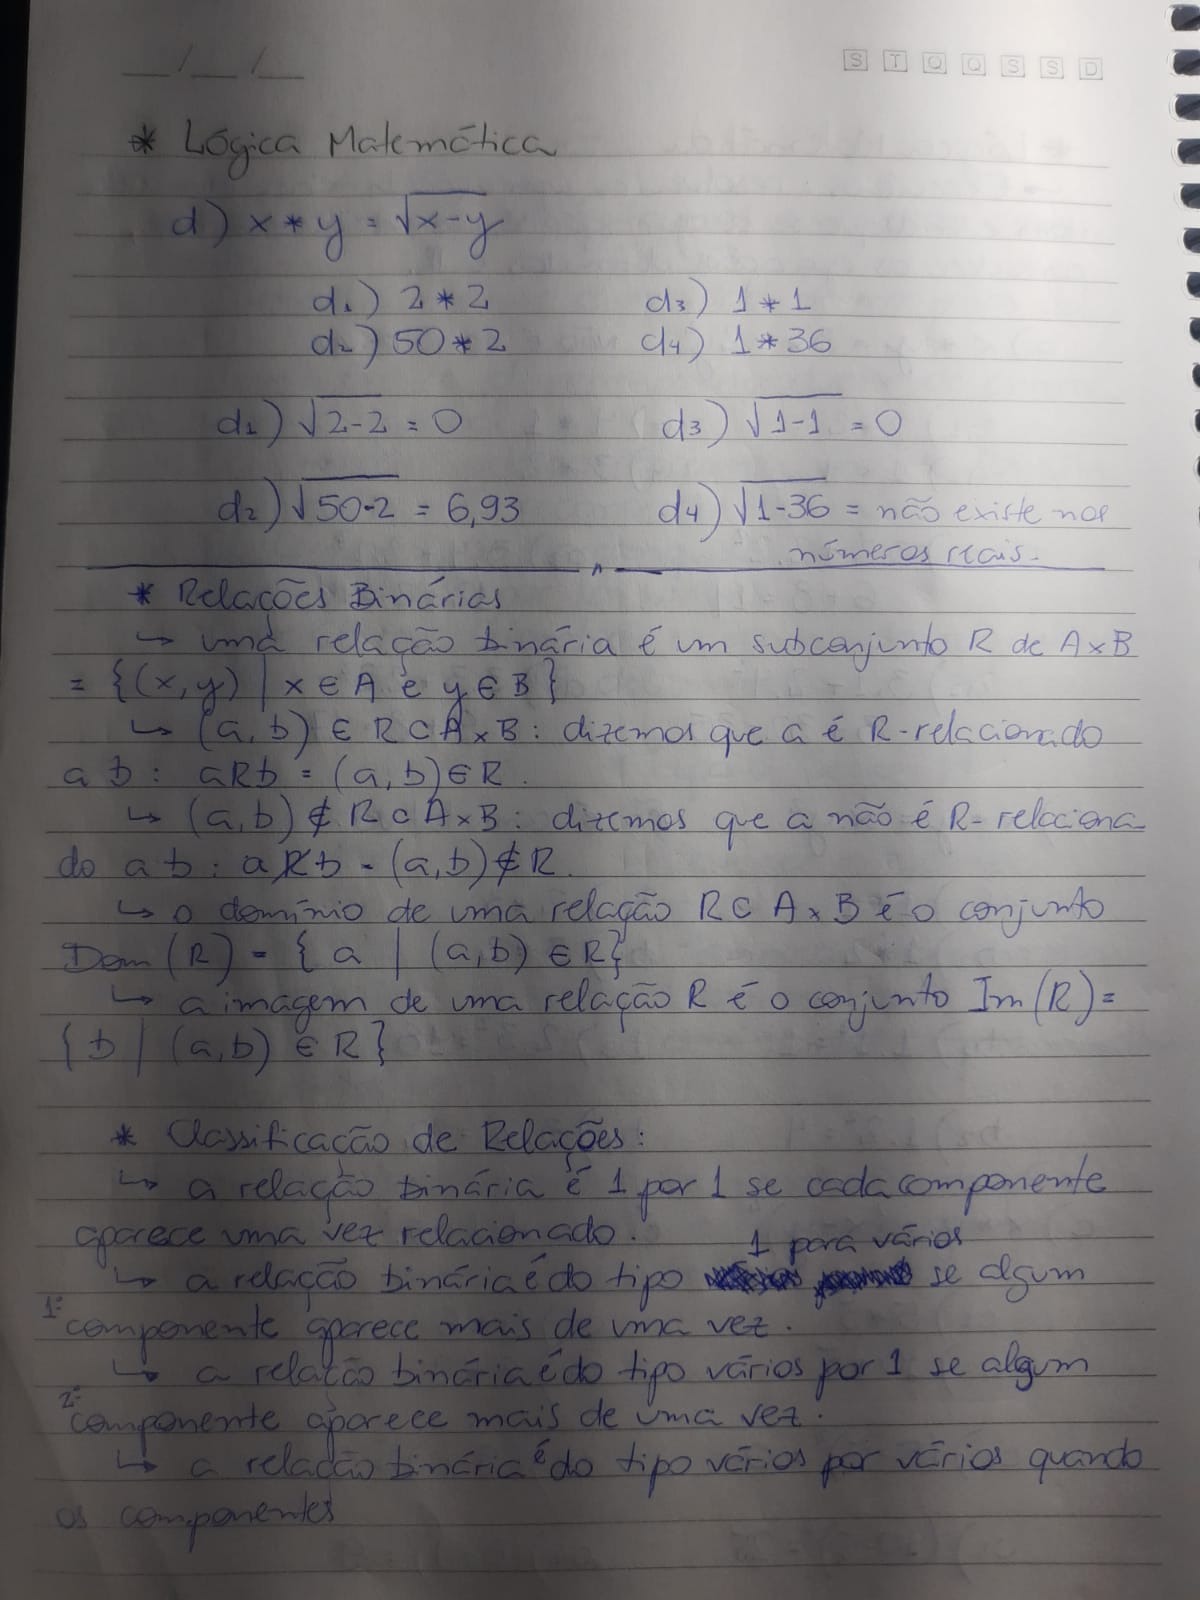 __/__/__
S T Q Q S S D
* Lógica Matemática
d) x * y = √x-y
d1) 2 * 2 d3) 1 * 1
d2) 50 * 2 d4) 1 * 36
d1) √2-2 = 0 d3) √1-1 = 0
d2) √50-2 = 6,93 d4) √1-36 = não existe nos
números reais.
* Relações Binárias
↳ uma relação binária é um subconjunto R de A×B
= {(x,y) | x ∈ A e y ∈ B}
↳ (a,b) ∈ R ⊂ A×B: dizemos que a é R-relacionado
a b: aRb = (a,b) ∈ R.
↳ (a,b) ∉ R ⊂ A×B: dizemos que a não é R-relaciona
do a b: aR̸b = (a,b) ∉ R.
↳ o domínio de uma relação R ⊂ A×B é o conjunto
Dom(R) = { a | (a,b) ∈ R}
↳ a imagem de uma relação R é o conjunto Im(R) =
{ b | (a,b) ∈ R}
* Classificação de Relações:
↳ a relação binária é 1 por 1 se cada componente
aparece uma vez relacionado.
↳ a relação binária é do tipo 1 para vários se algum
1º componente aparece mais de uma vez.
↳ a relação binária é do tipo vários por 1 se algum
2º componente aparece mais de uma vez.
↳ a relação binária é do tipo vários por vários quando
os componentes